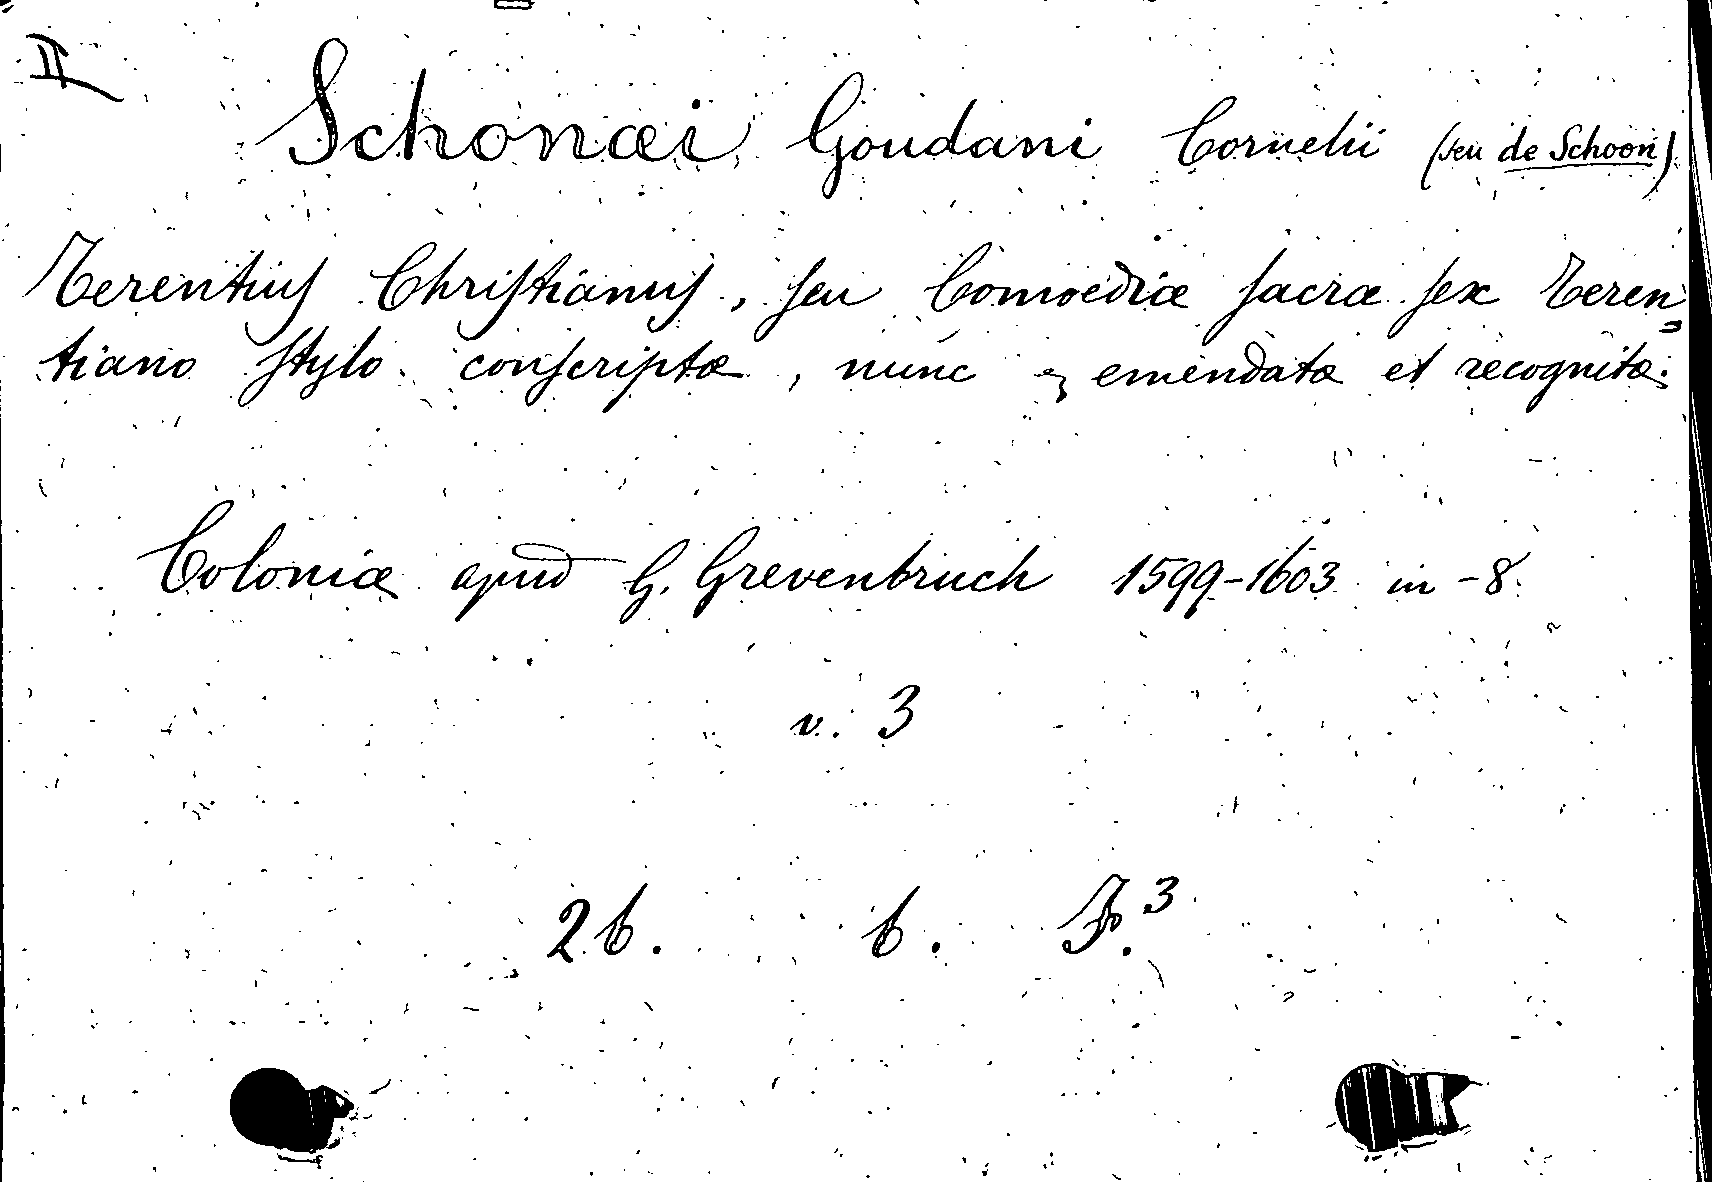 II
Schonæi Goudani Cornelii (seu de Schoon)
Terentius Christianus, seu Comoediæ sacræ sex Teren=
tiano stylo conscriptæ, nunc emendatæ et recognitæ.
Coloniæ apud G. Grevenbruch 1599-1603 in-8.
v. 3
26. 6. F.³